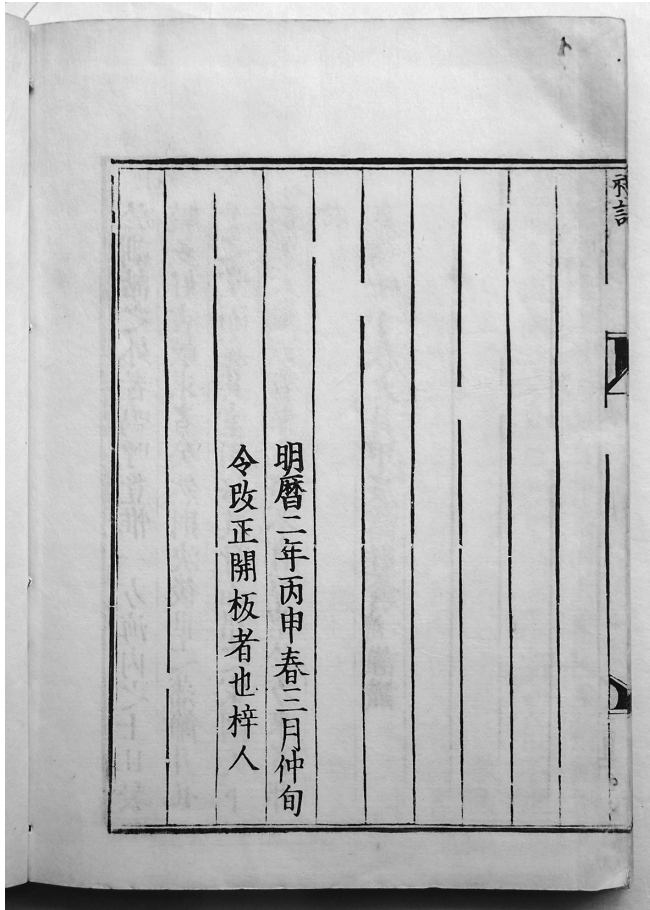 明暦二年丙申春三月仲旬
令改正開板者也梓人